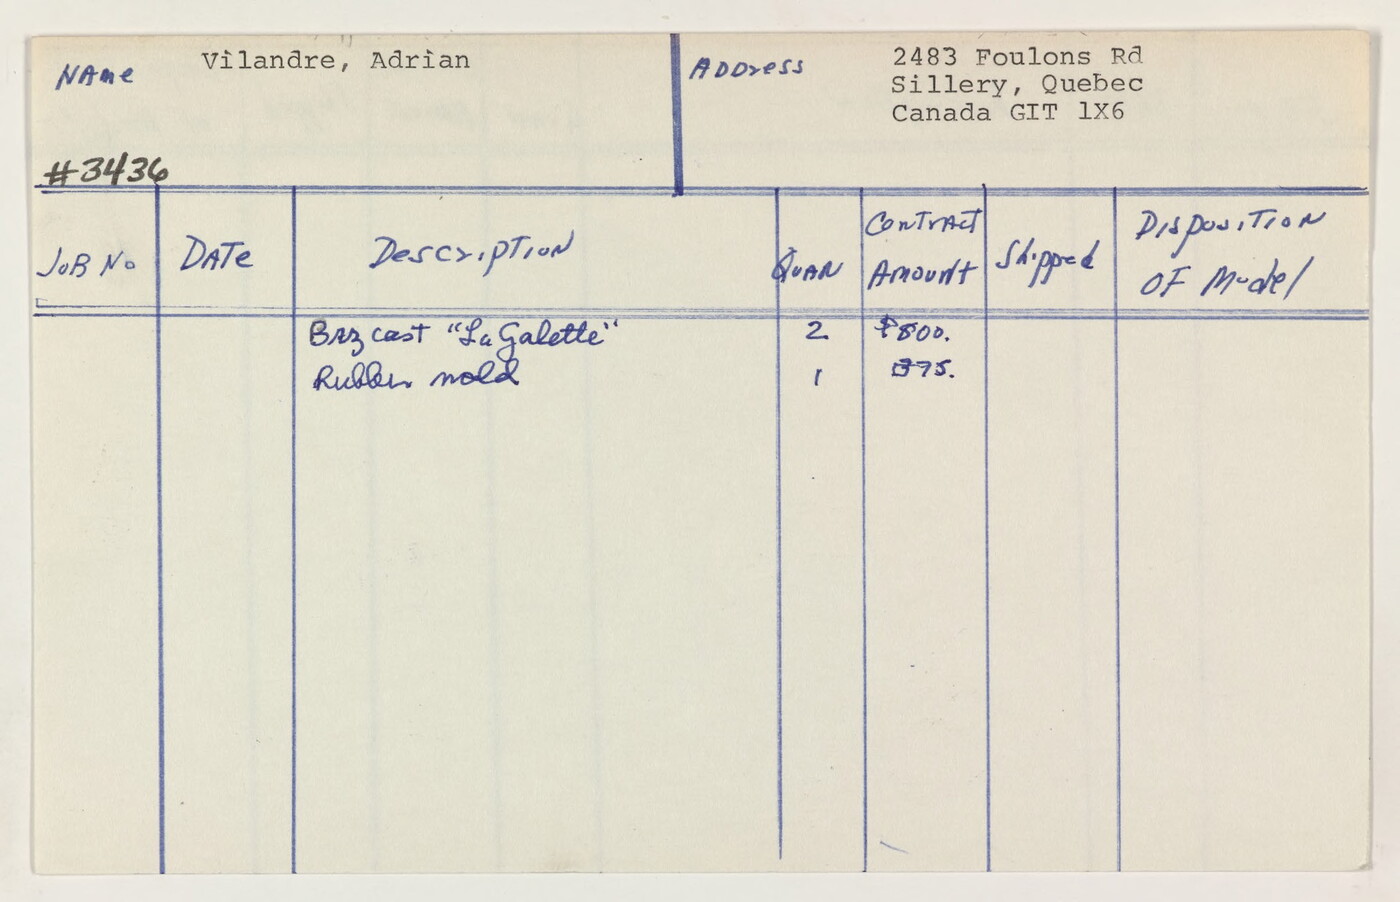 Name Vilandre, Adrian Address 2483 Foulons Rd
Sillery, Quebec
Canada GIT 1X6
#3436
Job No Date Description Quan Contract Amount Shipped Disposition of Model
Brz cast "La Galette" 2 $800.
Rubber mold 1 375.